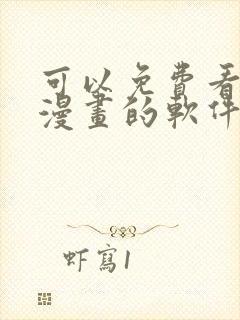 可以免費看
漫畫的軟件
虾寫1